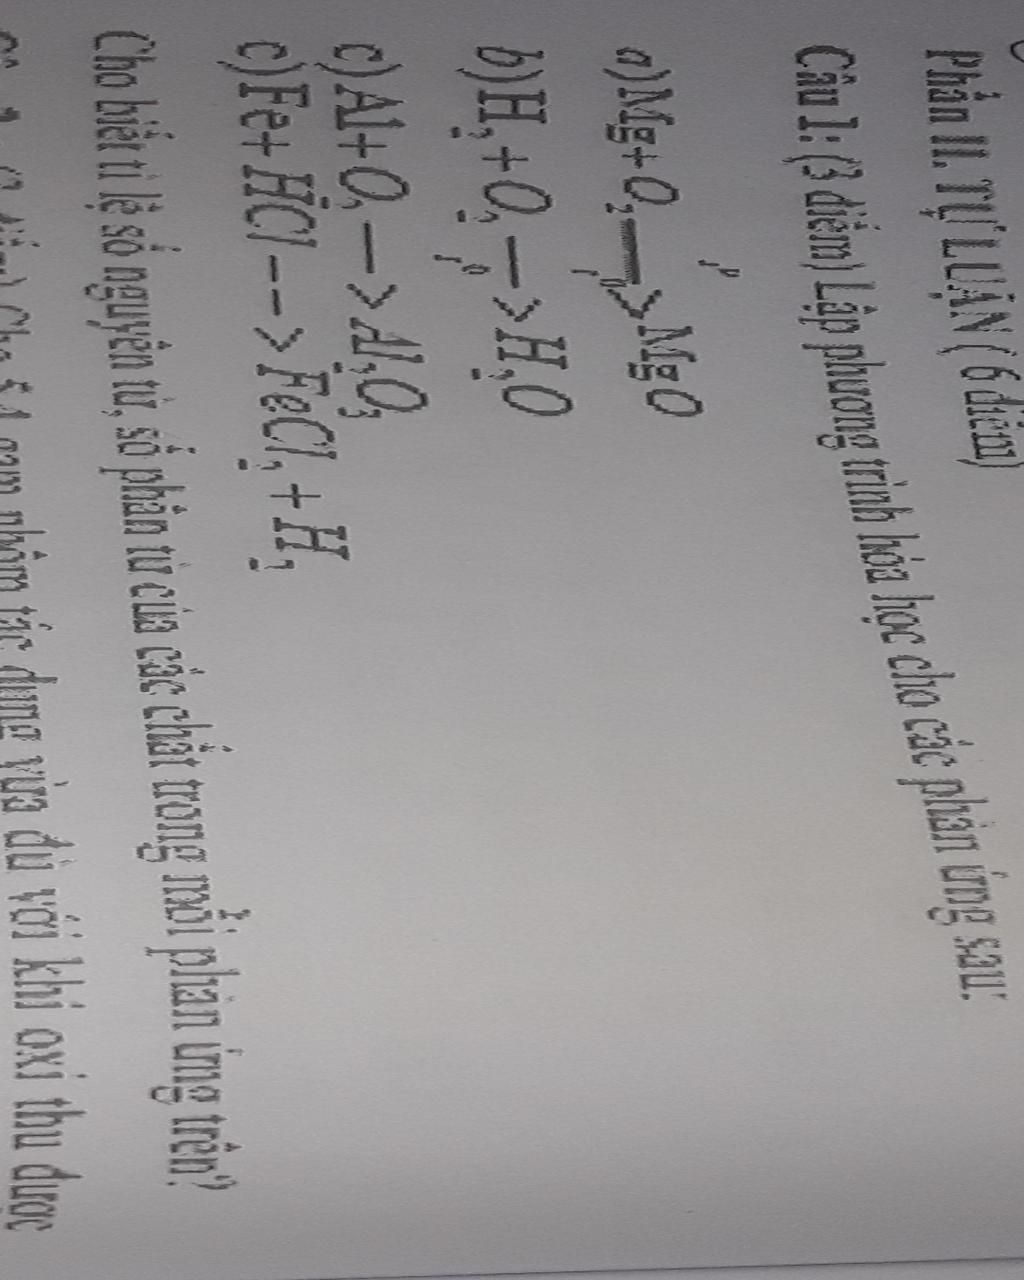 Phần II. TỰ LUẬN ( 6 điểm)
Câu 1: (3 điểm) Lập phương trình hóa học cho các phản ứng sau:
t⁰
a) Mg + O₂ —> MgO
t⁰
b) H₂ + O₂ —> H₂O
t⁰
c) Al + O₂ —> Al₂O₃
c) Fe + HCl ---> FeCl₂ + H₂
Cho biết tỉ lệ số nguyên tử, số phân tử của các chất trong mỗi phản ứng trên?
gam nhôm tác dụng vừa đủ với khí oxi thu được